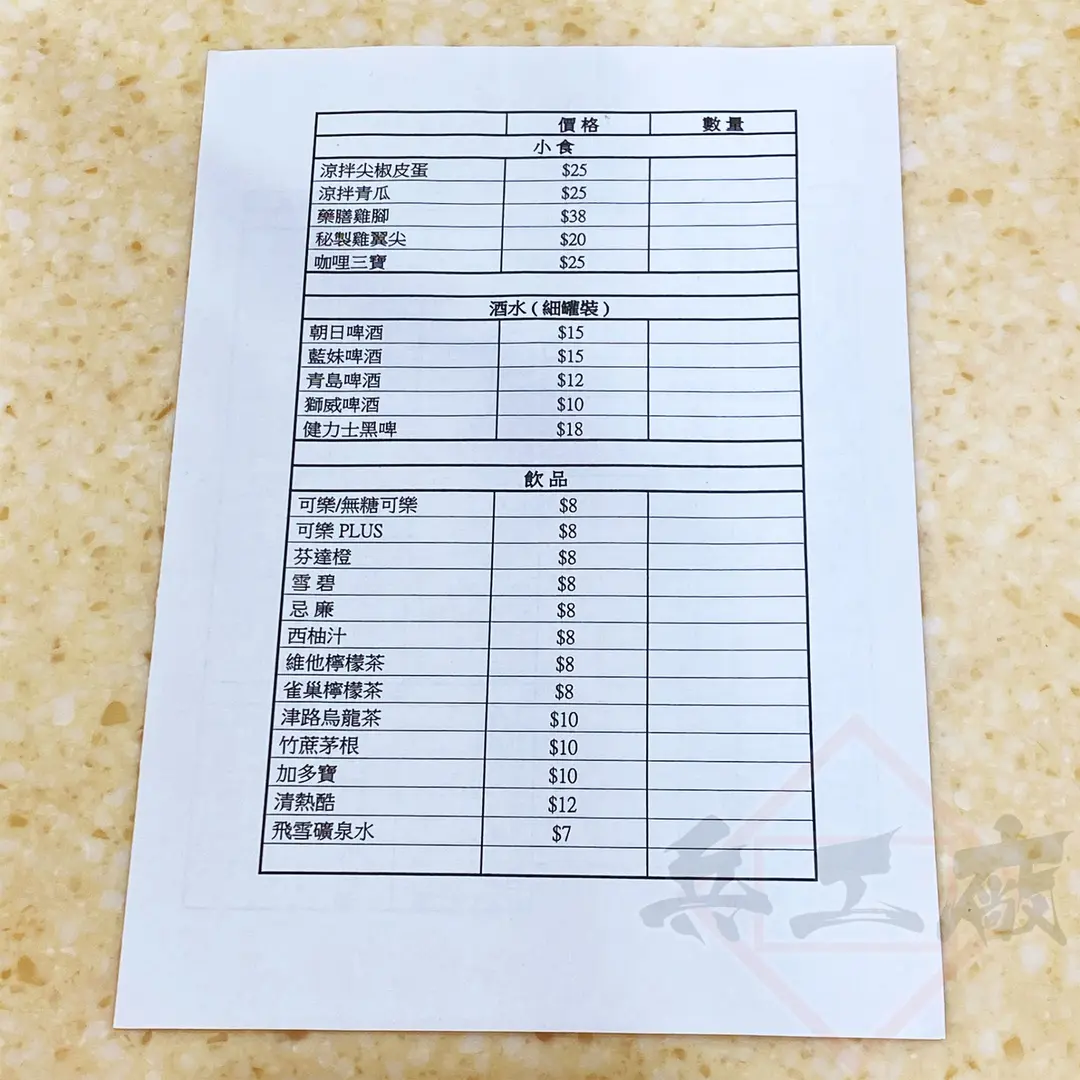 價 格 數 量
小 食
涼拌尖椒皮蛋 $25
涼拌青瓜 $25
藥膳雞腳 $38
秘製雞翼尖 $20
咖哩三寶 $25
酒水 ( 細罐裝 )
朝日啤酒 $15
藍妹啤酒 $15
青島啤酒 $12
獅威啤酒 $10
健力士黑啤 $18
飲 品
可樂/無糖可樂 $8
可樂 PLUS $8
芬達橙 $8
雪 碧 $8
忌 廉 $8
西柚汁 $8
維他檸檬茶 $8
雀巢檸檬茶 $8
津路烏龍茶 $10
竹蔗茅根 $10
加多寶 $10
清熱酷 $12
飛雪礦泉水 $7
兵工廠